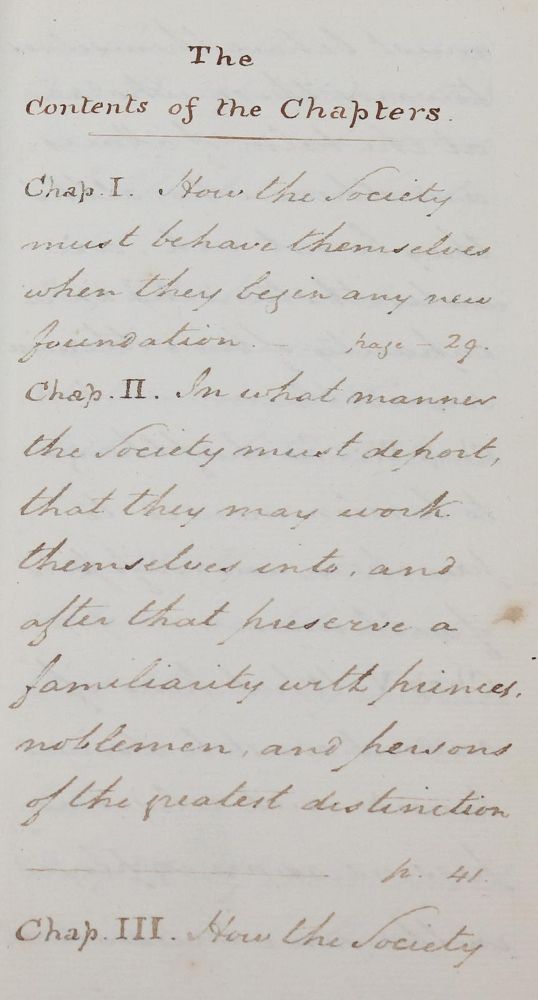 The
Contents of the Chapters.
Chap. I. How the Society
must behave themselves
when they begin any new
foundation. — page — 29.
Chap. II. In what manner
the Society must deport,
that they may work
themselves into, and
after that preserve a
familiarity with princes,
noblemen, and persons
of the greatest distinction
p. 41.
Chap. III. How the Society